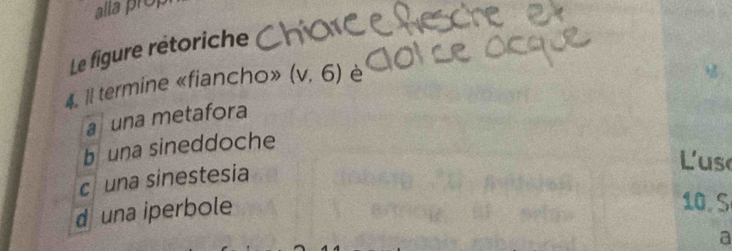 alla prop
Le figure retoriche Chiare e fresche et
dolce acque
4. Il termine «fiancho» (v. 6) è
a una metafora
b una sineddoche
c una sinestesia
d una iperbole
L'uso
10. S
a